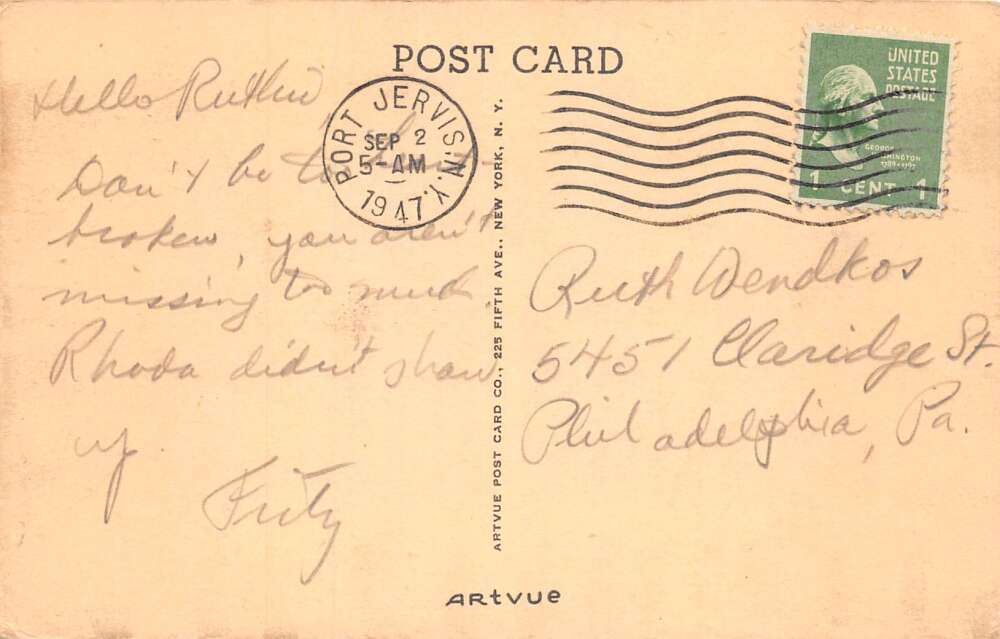 POST CARD
Hello Ruthie
Don't be too heart-
broken, you aren't
missing too much.
Rhoda didn't show
up
Fritz
PORT JERVIS, N.Y.
SEP 2
5-AM
1947
UNITED
STATES
POSTAGE
GEORGE
WASHINGTON
1789-1797
1 CENT 1
Ruth Wendkos
5451 Claridge St.
Philadelphia, Pa.
ARTVUE POST CARD CO., 225 FIFTH AVE., NEW YORK, N. Y.
ARTVUE